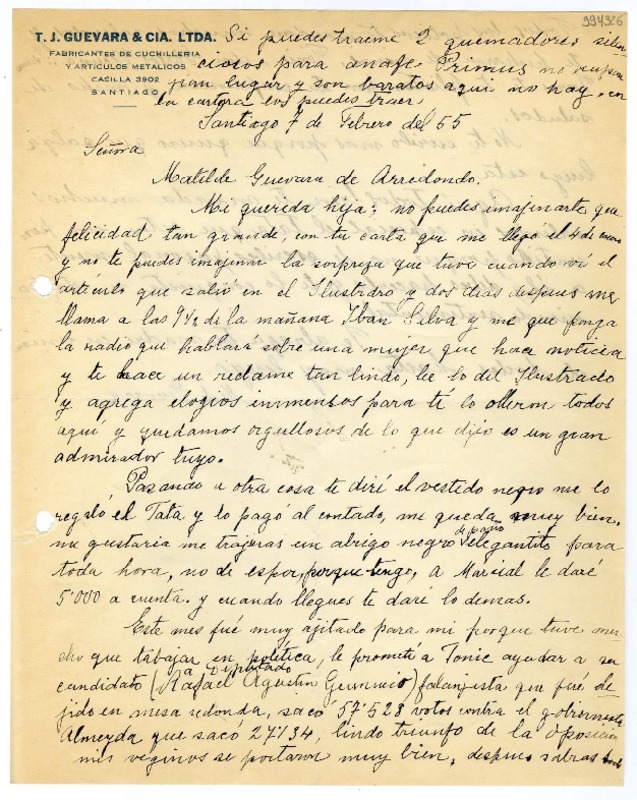 994326
T. J. GUEVARA & CIA. LTDA.
FABRICANTES DE CUCHILLERIA
Y ARTICULOS METALICOS
CASILLA 3902
SANTIAGO
Si puedes traeme 2 quemadores silen
ciosos para anafe Primus no ocupan
lugar y son baratos aquí no hay, en
la cartera los puedes traer
Santiago 7 de Febrero del 55
Señora
Matilde Guevara de Arredondo.
Mi querida hija: no puedes imajinarte que
felicidad tan grande, con tu carta que me llego el 4 de
y no te puedes imajinar la sorpreza que tuve cuando ví el
artículo que salió en el Ilustrdro y dos dias despues me
llama a las 9½ de la mañana Iban Silva y me que ponga
la radio que hablara sobre una mujer que hace noticia
y te hace un reclame tan lindo, lee lo del Ilustrado
y agrega elogios inmensos para tí lo olleron todos
aquí y quedamos orgullosos de lo que dijo es un gran
admirador tuyo.
Pazando a otra cosa te diré el vestido negro me lo
regaló el Tata y lo pagó al contado, me queda muy bien,
me gustaria me trajeras un abrigo negro de paño elegantito para
toda hora, no de espor, porque tengo, a Marsial le daré
5'000 a cuenta. y cuando llegues te daré lo demas.
Este mes fué muy ajitado para mi porque tuve mu
cho que tabajar en política, le prometí a Tonic ayudar a su
candidato a Diputado (Rafael Agustin Gumucio) falanjista que fué ele
jido en mesa redonda, sacó 57'528 votos contra el gobiernista
Almeyda que sacó 27'134, lindo triunfo de la oposición
mis veginos se portaron muy bien, despues sabras